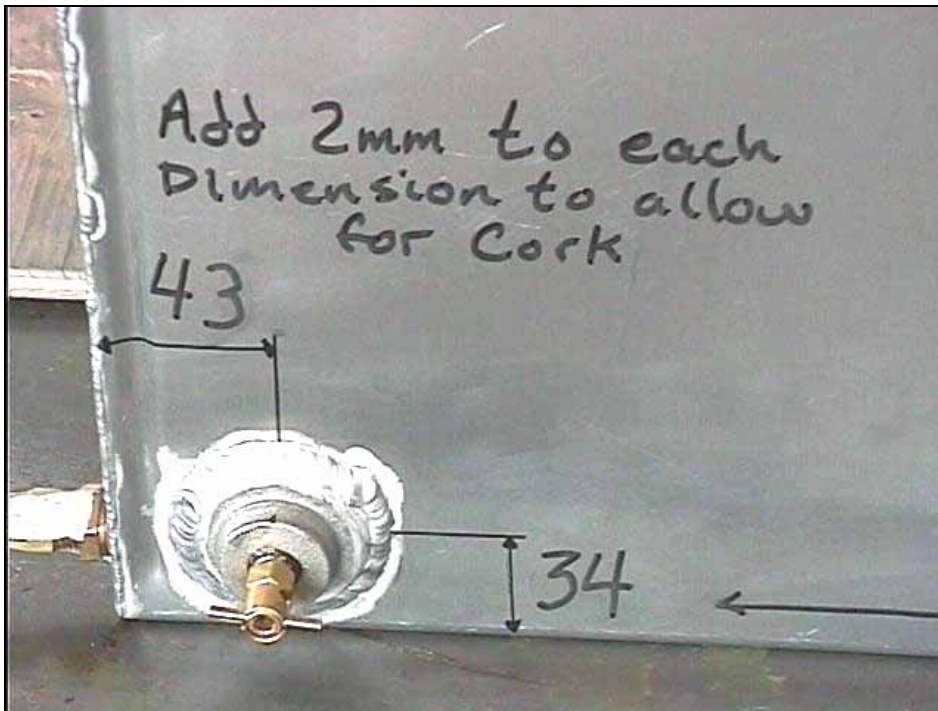 Add 2mm to each
Dimension to allow
for Cork
43
34